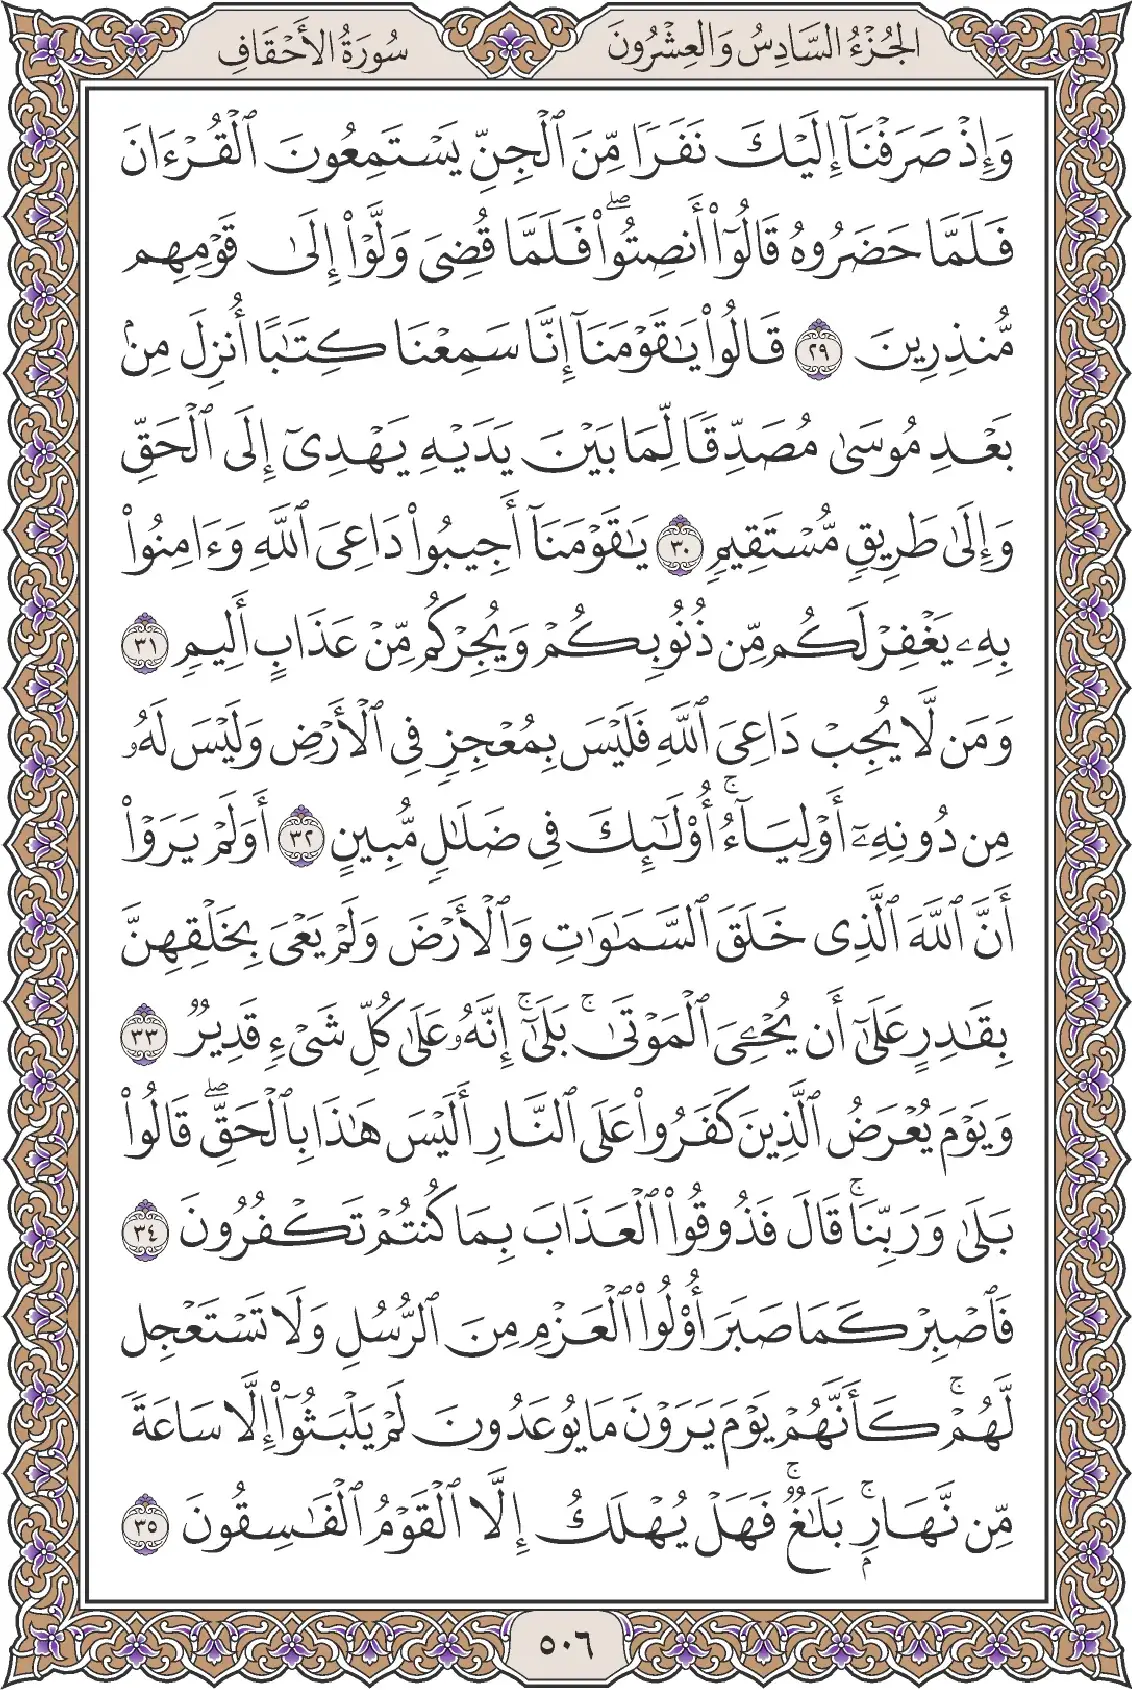 الجُزْءُ السَّادِسُ وَالعِشْرُونَ
سُورَةُ الأَحْقَافِ
وَإِذْ صَرَفْنَآ إِلَيْكَ نَفَرًا مِّنَ ٱلْجِنِّ يَسْتَمِعُونَ ٱلْقُرْءَانَ
فَلَمَّا حَضَرُوهُ قَالُوٓا۟ أَنصِتُوا۟ ۖ فَلَمَّا قُضِىَ وَلَّوْا۟ إِلَىٰ قَوْمِهِم
مُّنذِرِينَ ٢٩ قَالُوا۟ يَـٰقَوْمَنَآ إِنَّا سَمِعْنَا كِتَـٰبًا أُنزِلَ مِنۢ
بَعْدِ مُوسَىٰ مُصَدِّقًا لِّمَا بَيْنَ يَدَيْهِ يَهْدِىٓ إِلَى ٱلْحَقِّ
وَإِلَىٰ طَرِيقٍ مُّسْتَقِيمٍ ٣٠ يَـٰقَوْمَنَآ أَجِيبُوا۟ دَاعِىَ ٱللَّهِ وَءَامِنُوا۟
بِهِۦ يَغْفِرْ لَكُم مِّن ذُنُوبِكُمْ وَيُجِرْكُم مِّنْ عَذَابٍ أَلِيمٍ ٣١
وَمَن لَّا يُجِبْ دَاعِىَ ٱللَّهِ فَلَيْسَ بِمُعْجِزٍ فِى ٱلْأَرْضِ وَلَيْسَ لَهُۥ
مِن دُونِهِۦٓ أَوْلِيَآءُ ۚ أُو۟لَـٰٓئِكَ فِى ضَلَـٰلٍ مُّبِينٍ ٣٢ أَوَلَمْ يَرَوْا۟
أَنَّ ٱللَّهَ ٱلَّذِى خَلَقَ ٱلسَّمَـٰوَٰتِ وَٱلْأَرْضَ وَلَمْ يَعْىَ بِخَلْقِهِنَّ
بِقَـٰدِرٍ عَلَىٰٓ أَن يُحْـِۧىَ ٱلْمَوْتَىٰ ۚ بَلَىٰٓ ۚ إِنَّهُۥ عَلَىٰ كُلِّ شَىْءٍ قَدِيرٌ ٣٣
وَيَوْمَ يُعْرَضُ ٱلَّذِينَ كَفَرُوا۟ عَلَى ٱلنَّارِ أَلَيْسَ هَـٰذَا بِٱلْحَقِّ ۖ قَالُوا۟
بَلَىٰ وَرَبِّنَا ۚ قَالَ فَذُوقُوا۟ ٱلْعَذَابَ بِمَا كُنتُمْ تَكْفُرُونَ ٣٤
فَٱصْبِرْ كَمَا صَبَرَ أُو۟لُوا۟ ٱلْعَزْمِ مِنَ ٱلرُّسُلِ وَلَا تَسْتَعْجِل
لَّهُمْ ۚ كَأَنَّهُمْ يَوْمَ يَرَوْنَ مَا يُوعَدُونَ لَمْ يَلْبَثُوٓا۟ إِلَّا سَاعَةً
مِّن نَّهَارٍۭ ۚ بَلَـٰغٌ ۚ فَهَلْ يُهْلَكُ إِلَّا ٱلْقَوْمُ ٱلْفَـٰسِقُونَ ٣٥
٥٠٦